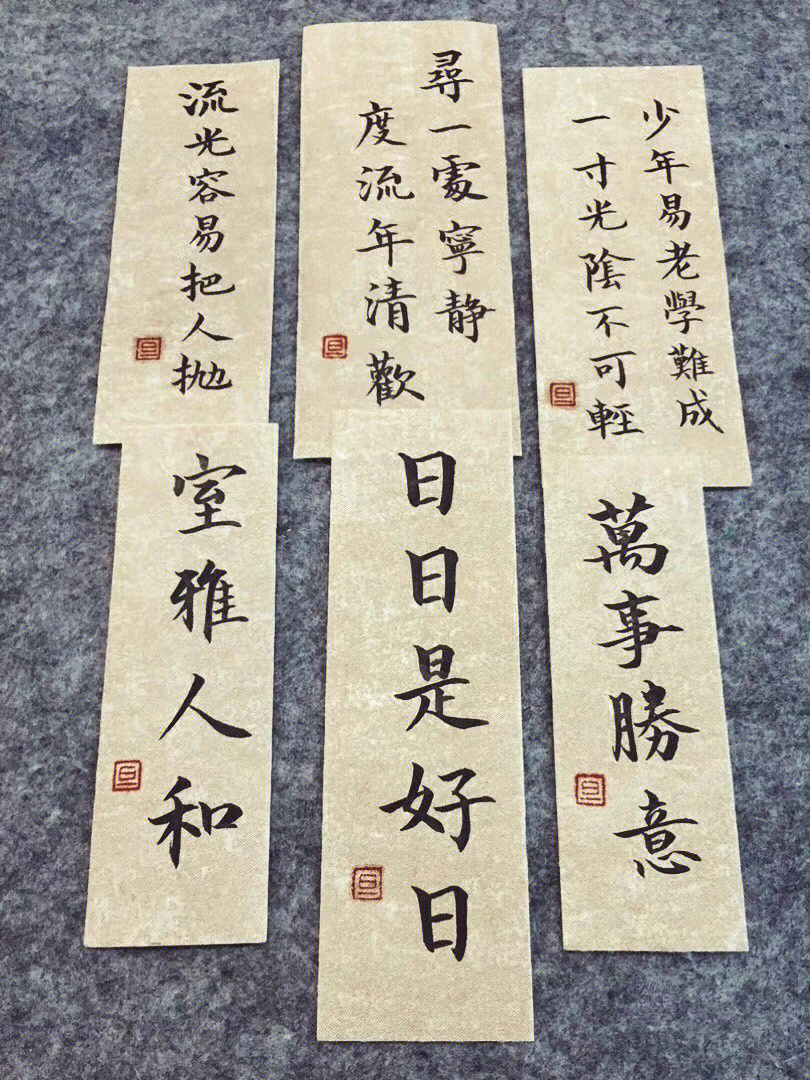 少年易老學難成
一寸光陰不可輕
尋一處寧静
度流年清歡
流光容易把人抛
萬事勝意
日日是好日
室雅人和